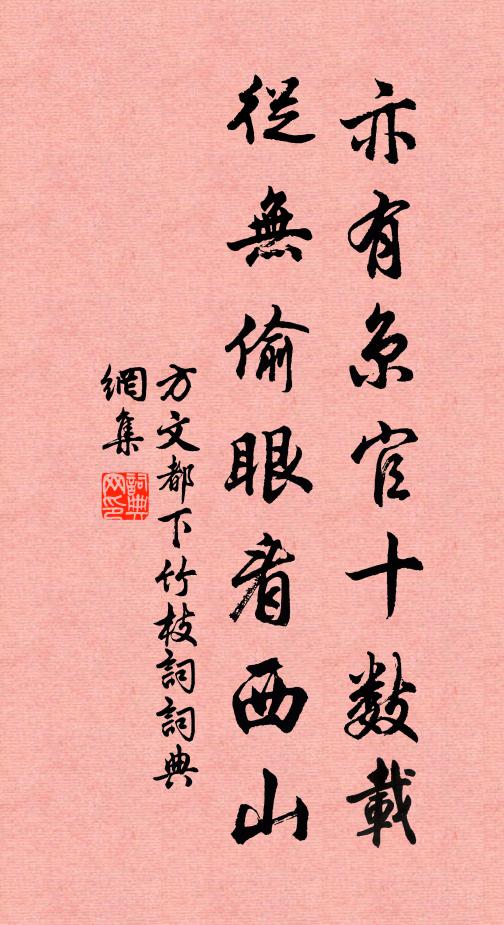 亦有京官十數載
從無偷眼看西山
方文都下竹枝詞詞典
網集
詞典
网印